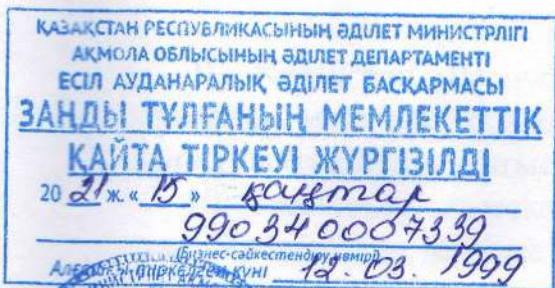 ҚАЗАҚСТАН РЕСПУБЛИКАСЫНЫҢ ӘДІЛЕТ МИНИСТРЛІГІ
АҚМОЛА ОБЛЫСЫНЫҢ ӘДІЛЕТ ДЕПАРТАМЕНТІ
ЕСІЛ АУДАНАРАЛЫҚ ӘДІЛЕТ БАСҚАРМАСЫ
ЗАҢДЫ ТҰЛҒАНЫҢ МЕМЛЕКЕТТІК
ҚАЙТА ТІРКЕУІ ЖҮРГІЗІЛДІ
20 21 ж. « 15 » қаңтар
990340007339
(Бизнес-сәйкестендіру нөмірі)
Алғашқы тіркелген күні 12.03.1999